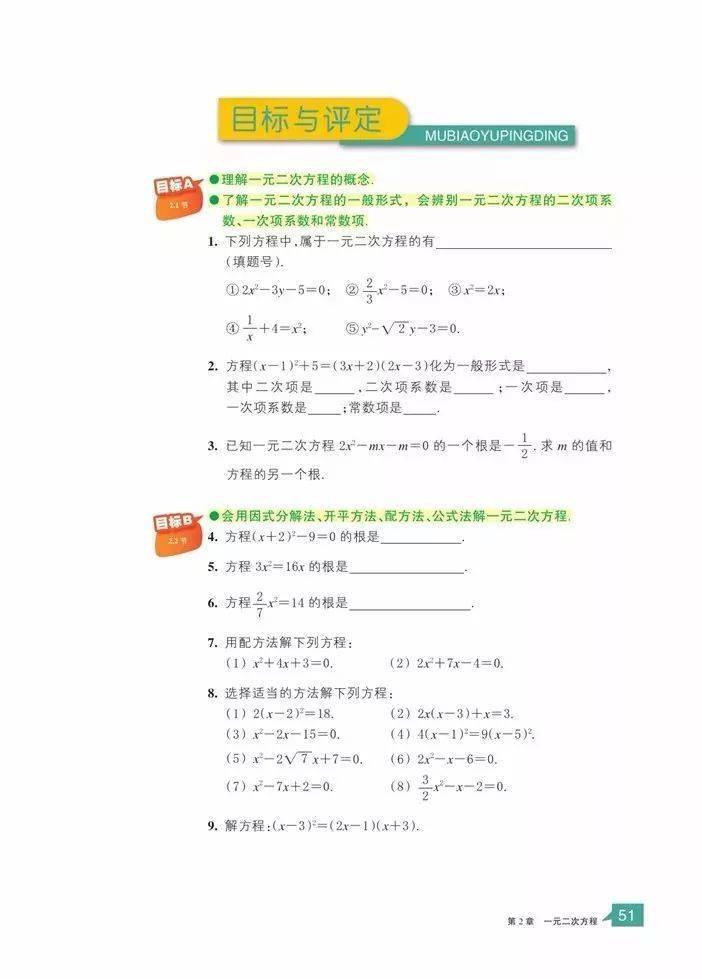 目标与评定
MUBIAOYUPINGDING
目标A
2.1 节
●理解一元二次方程的概念.
●了解一元二次方程的一般形式，会辨别一元二次方程的二次项系
数、一次项系数和常数项.
1. 下列方程中，属于一元二次方程的有____________
(填题号).
①2x²−3y−5=0； ②2/3x²−5=0； ③x²=2x；
④1/x+4=x²； ⑤y²−√2y−3=0.
2. 方程(x−1)²+5=(3x+2)(2x−3)化为一般形式是________，
其中二次项是____，二次项系数是____；一次项是____，
一次项系数是____；常数项是____.
3. 已知一元二次方程 2x²−mx−m=0 的一个根是−1/2. 求 m 的值和
方程的另一个根.
目标B
2.2 节
●会用因式分解法、开平方法、配方法、公式法解一元二次方程.
4. 方程(x+2)²−9=0 的根是________.
5. 方程 3x²=16x 的根是________.
6. 方程2/7x²=14 的根是________.
7. 用配方法解下列方程：
(1) x²+4x+3=0. (2) 2x²+7x−4=0.
8. 选择适当的方法解下列方程：
(1) 2(x−2)²=18. (2) 2x(x−3)+x=3.
(3) x²−2x−15=0. (4) 4(x−1)²=9(x−5)².
(5) x²−2√7x+7=0. (6) 2x²−x−6=0.
(7) x²−7x+2=0. (8) 3/2x²−x−2=0.
9. 解方程：(x−3)²=(2x−1)(x+3).
第 2 章 一元二次方程 51